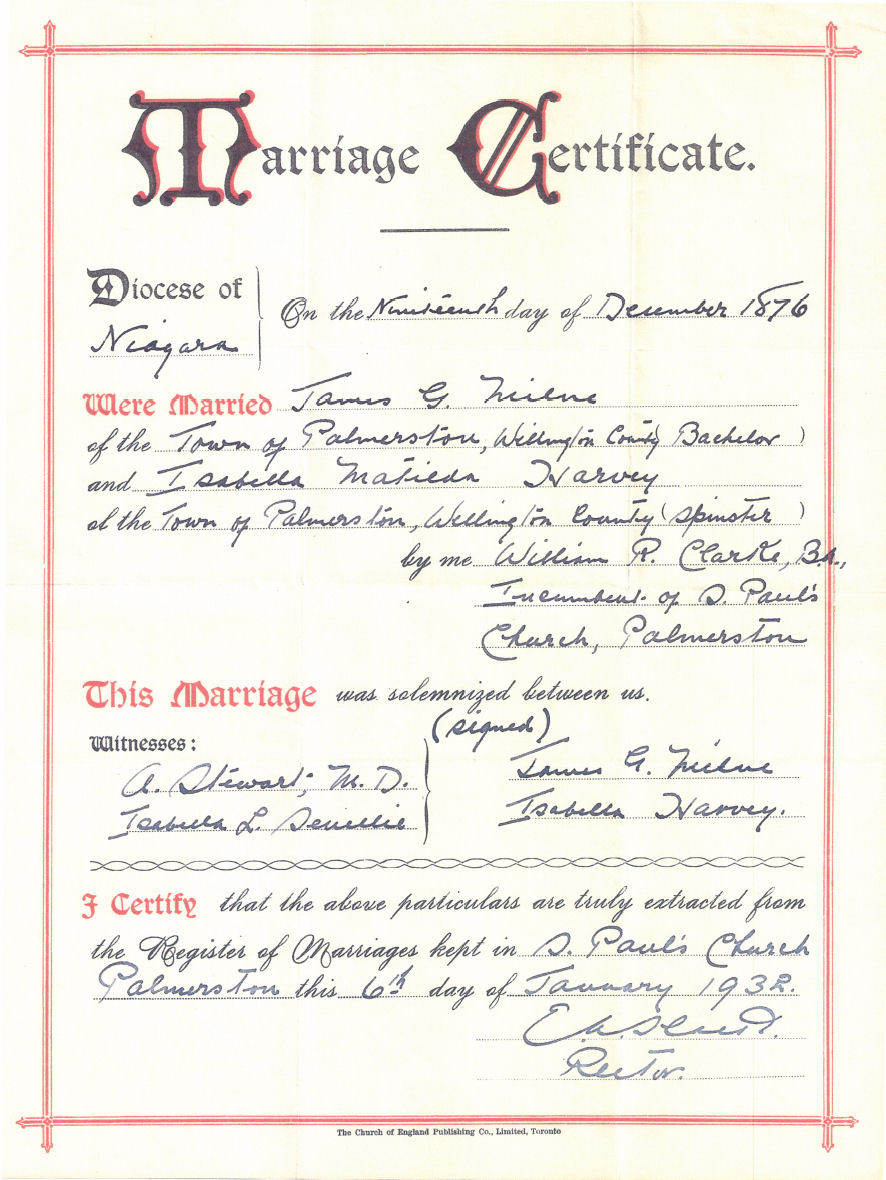 Marriage Certificate.
Diocese of
Niagara
On the Nineteenth day of December 1876
Were Married James G. Milne
of the Town of Palmerston, Wellington County Bachelor )
and Isabella Matilda Harvey
of the Town of Palmerston, Wellington County ( Spinster )
by me William R. Clarke, B.A.,
Incumbent of S. Paul's
Church, Palmerston
This Marriage was solemnized between us.
(signed)
Witnesses:
A. Stewart, M. D.
Isabella L.
James G. Milne
Isabella Harvey.
I Certify that the above particulars are truly extracted from
the Register of Marriages kept in S. Paul's Church
Palmerston this 6th day of January 1932.
Rector.
The Church of England Publishing Co., Limited, Toronto